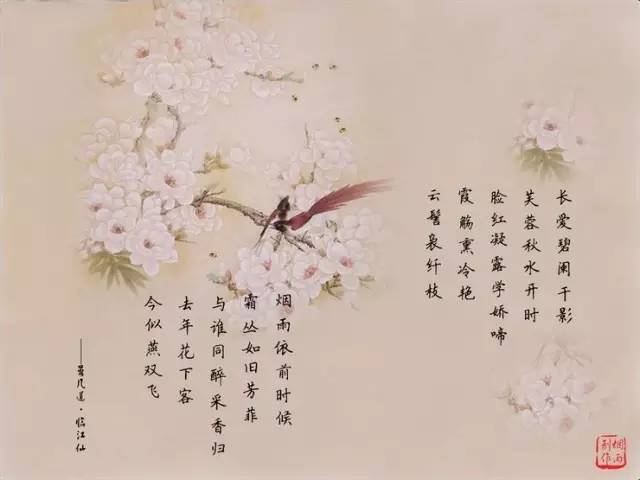 长爱碧阑干影
芙蓉秋水开时
脸红凝露学娇啼
霞觞熏冷艳
云髻袅纤枝
烟雨依前时候
霜丛如旧芳菲
与谁同醉采香归
去年花下客
今似燕双飞
——晏几道·临江仙
烟雨
制作